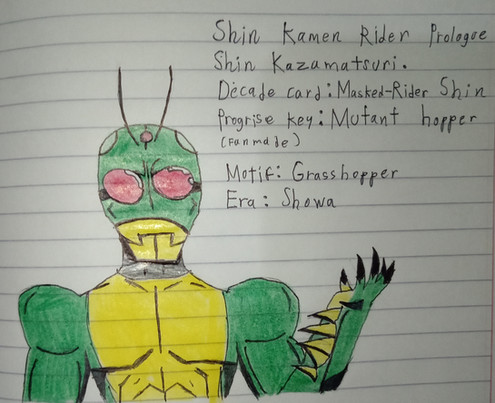 Shin Kamen Rider Prologue
Shin Kazamatsuri.
Decade card: Masked-Rider Shin
Progrise key: Mutant hopper
(Fanmade)
Motif: Grasshopper
Era: Showa